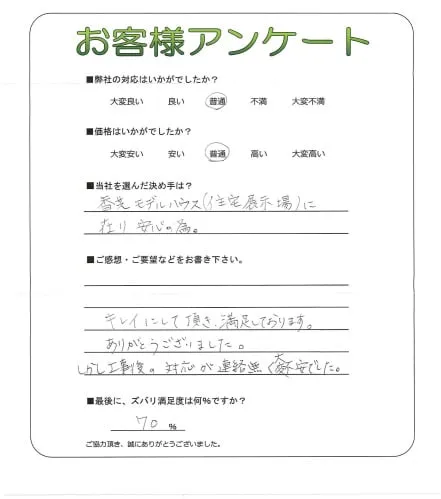 お客様アンケート
■弊社の対応はいかがでしたか？
大変良い 良い 普通 不満 大変不満
■価格はいかがでしたか？
大変安い 安い 普通 高い 大変高い
■当社を選んだ決め手は？
モデルハウス(住宅展示場)に
在り 安心の為。
■ご感想・ご要望などをお書き下さい。
キレイにして頂き、満足しております。
ありがとうございました。
しかし工事後の対応が連絡無く大変不安でした。
■最後に、ズバリ満足度は何％ですか？
70 %
ご協力頂き、誠にありがとうございました。